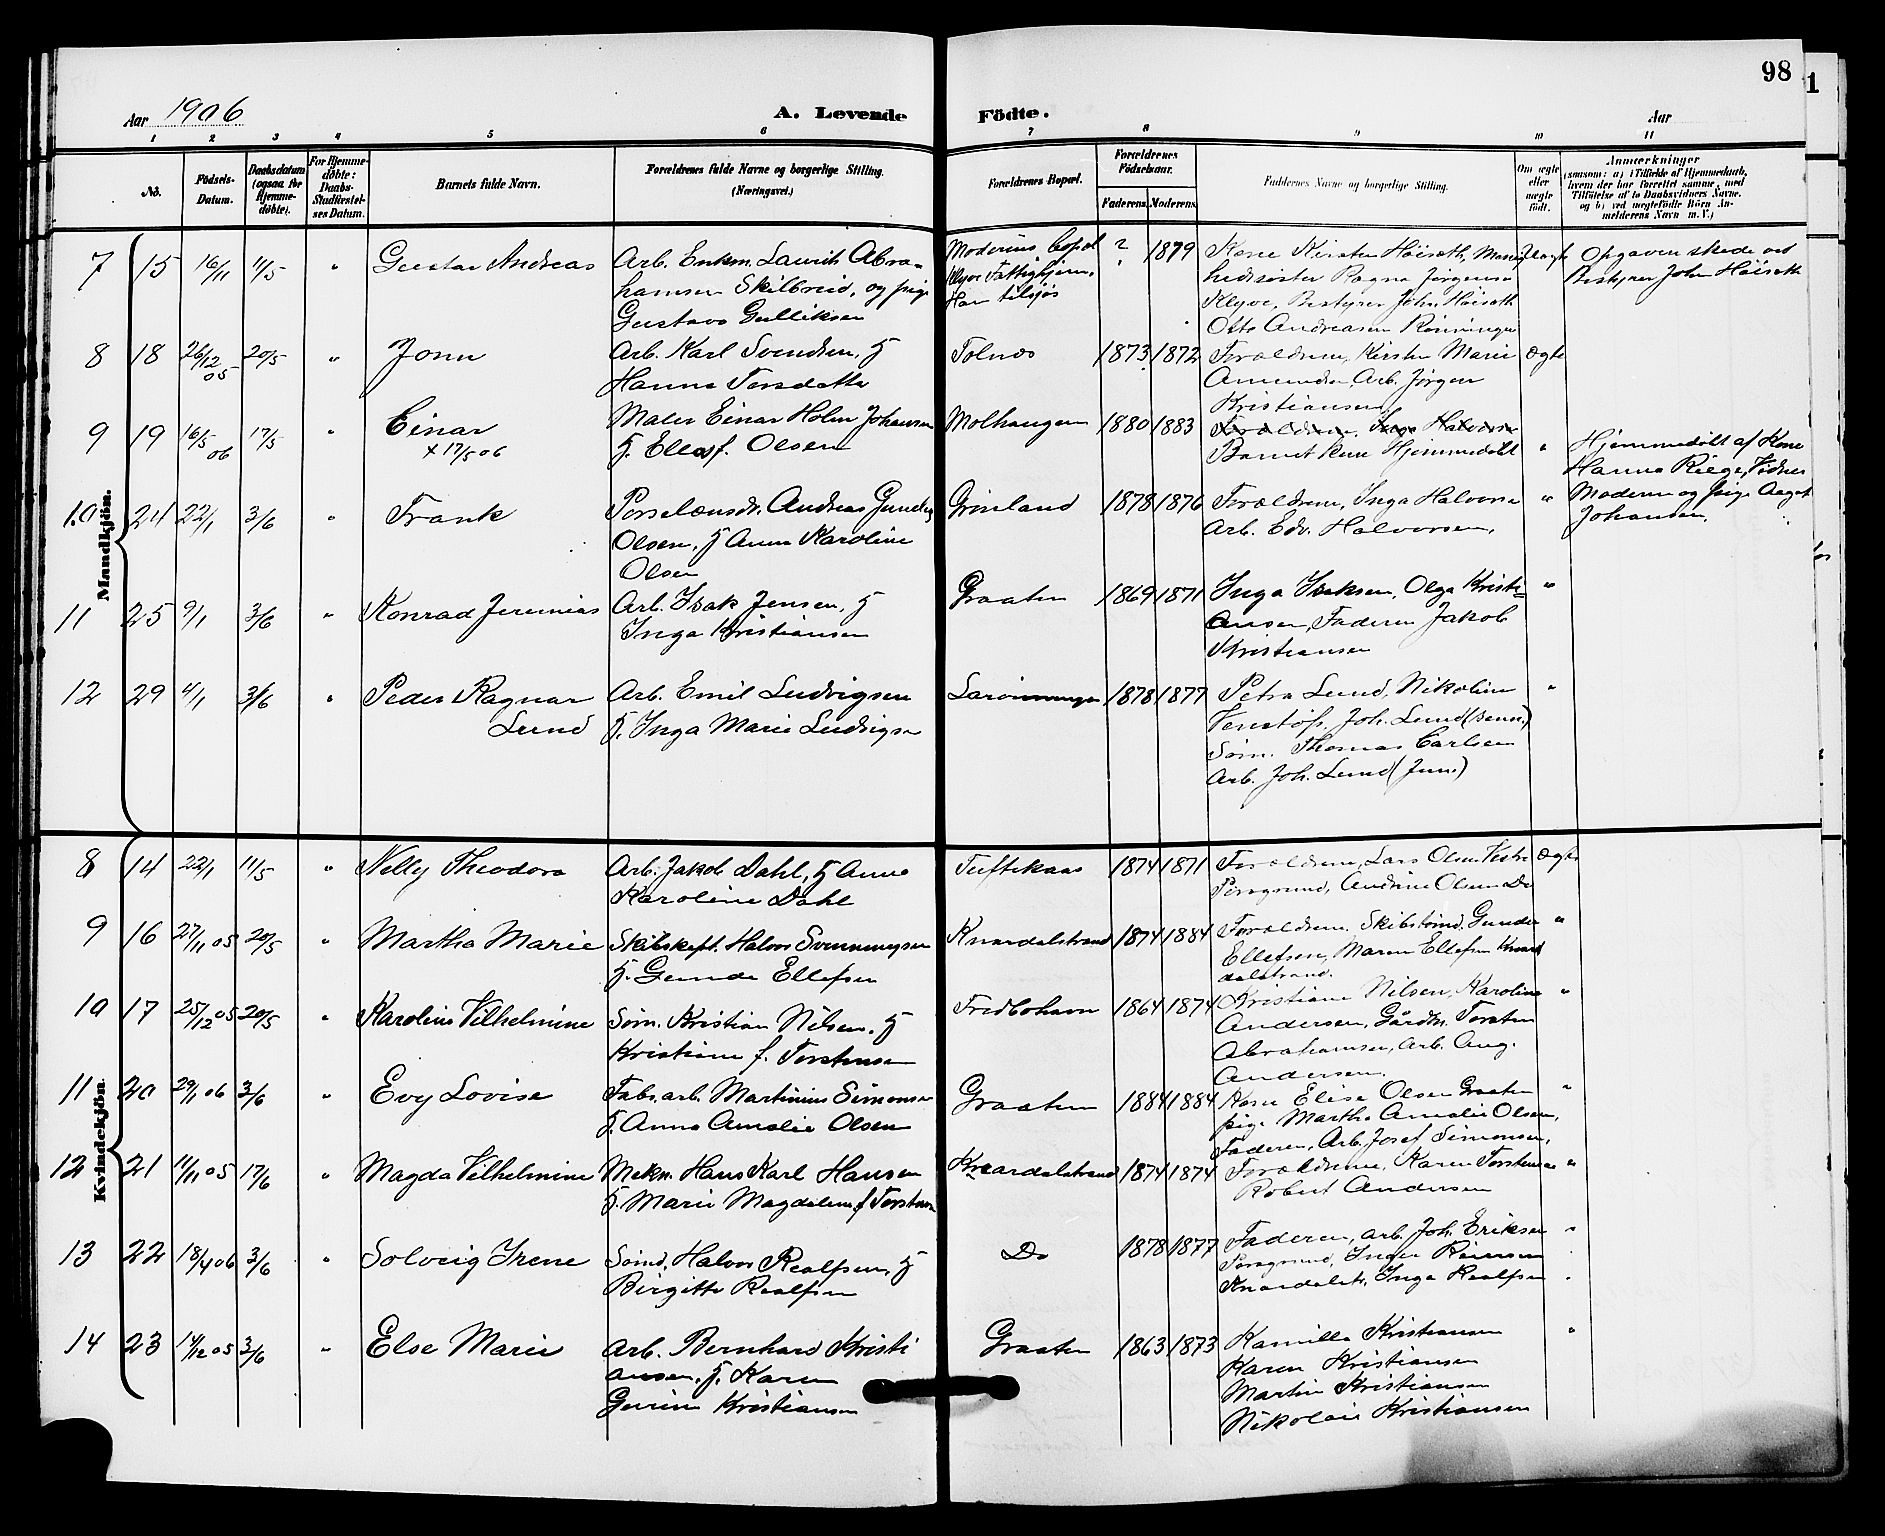 98
1
Aar 1906
A. Levende
Födte.
Aar
1 2 3 4 5 6 7 8 9 10 11
No.
Födsels-Datum.
Daabsdatum (ogsaa for Hjemme-döbte).
For Hjemme-döbte: Daabs-Stadfæstel-ses Datum.
Barnets fulde Navn.
Forældrenes fulde Navne og borgerlige Stilling.
(Næringsvei.)
Forældrenes Bopæl.
Forældrenes Födselsaar.
Faderens.
Moderens.
Faddernes Navne og borgerlige Stilling.
Om ægte eller uægte födt.
Anmærkninger
(saasom: a) i Tilfælde af Hjemmedaab, hvem der har forrettet samme, med Tilföielse af to Daabsvidners Navne, og b) ved uægtefödte Börn An-melderens Navn m. V.)
Mandkjön.
7 15 16/1 11/5 " Gustav Andreas
Arb. Enkm. Laurits Abra-
hamsen Skilbreid, og pige
Gustava Gulliksen
Moderens Bopæl
Klyve Fattighjem.
Han tilsjøs
? 1879
Kone Kirsten Höiseth,
Ragna Jörgensen
Klyve, Bestyrer John Höiseth
Otto Andreasen Rönningen
Uægte
Opgaven skede ved
Bestyrer John Höiseth
8 18 26/12 05 20/5 " John
Arb. Karl Svendsen, H
Hanna Torsdatter
Tolnæs 1873 1872
Forældrene, Kirsten Marie
Amundsen, Arb. Jörgen
Kristiansen
Ægte
9 19 16/5 06 17/5 " Einar
+ 17/5 06
Maler Einar Holm Johansen
H. Ella f. Olsen
Molhaugen 1880 1883
Forældrene, Inga Halvorsen
Barnet kun Hjemmedöbt "
Hjemmedöbt af Kone
Hanna Riege, Vidner
Moderen og pige Aagot
Johansen.
10 24 22/1 3/6 " Frank
Porselænsdr. Andreas
Olsen, H Anna Karoline
Olsen
Grinland 1878 1876
Forældrene, Inga Halvorsen
Arb. Edv. Halvorsen. "
11 25 9/1 3/6 " Konrad Jeremias
Arb. Isak Jensen, H
Inga Kristiansen
Graaten 1869 1871
Inga Isaksen, Olga Kristi-
ansen, Faderen Jakob
Kristiansen "
12 29 4/1 3/6 " Peder Ragnar
Lund
Arb. Emil Ludvigsen
H. Inga Marie Ludvigsen
Larönningen 1878 1877
Petra Lund, Nikoline
Venstöp, Joh. Lund (sen.)
Söm. Thomas Carlsen
Arb. Joh. Lund (Jun.) "
Kvindekjön.
8 14 22/1 11/5 " Nelly Theodora
Arb. Jakob Dahl, H Anna
Karoline Dahl
Tuftekaas 1874 1871
Forældrene, Lars Olsen Vestre
Porsgrund, Andrine Olsen Do
Ægte
9 16 27/11 05 20/5 " Martha Marie
Skibskapt. Halvor Svenningsen
H. Gunda Ellefsen
Knardalstrand 1874 1884
Forældrene, Skibstömd. Gunder
Ellefsen, Maren Ellefsen Knar-
dalstrand. "
10 17 25/12 05 20/5 " Karoline Vilhelmine
Söm. Kristian Nilsen, H
Kristiane f. Torstensen
Fredbohavn 1864 1874
Kristiane Nilsen, Karoline
Andersen, Gårdbr. Torsten
Abrahamsen, Arb. Aug.
Andersen. "
11 20 29/1 06 3/6 " Evy Lovise
Fabr.arb. Martinius Simonsen
H. Anna Amalie Olsen
Graaten 1884 1884
Kone Elise Olsen Graaten
pige Martha Amalie Olsen,
Faderen, Arb. Josef Simonsen, "
12 21 11/11 05 17/6 " Magda Vilhelmine
Mekn. Hans Karl Hansen
H. Marie Magdalene f Torstensen
Knardalstrand 1874 1874
Forældrene, Karen Torstensen
Robert Andersen "
13 22 18/4 06 3/6 " Solveig Irene
Sömd. Halvor Realfsen, H
Birgitte Realfsen
Do 1878 1877
Faderen, Arb. Joh. Eriksen
Porsgrund, Inger
Knardalstr. Inga Realfsen "
14 23 14/12 05 3/6 " Else Marie
Arb. Bernhard Kristi
ansen, H. Karen
Gurine Kristiansen
Graaten 1863 1873
Kamilla Kristiansen
Karen Kristiansen
Martin Kristiansen
Nikolai Kristiansen "